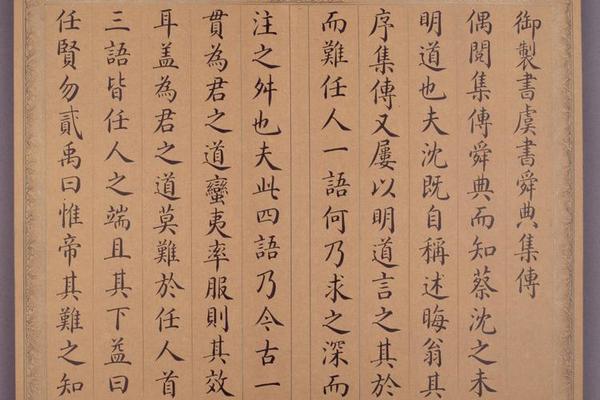 御製書虞書舜典集傳
偶閱集傳舜典而知蔡沈之未
明道也夫沈既自稱述晦翁其
序集傳又屢以明道言之其於
而難任人一語何乃求之深而
注之舛也夫此四語乃今古一
貫為君之道蠻夷率服則其效
耳盖為君之道莫難於任人首
三語皆任人之端且其下益曰
任賢勿貳禹曰惟帝其難之知